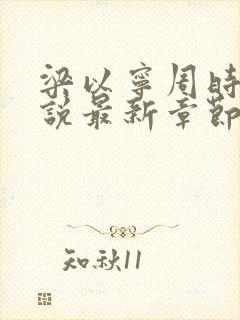 梁以寧周時
說最新章節
知秋11